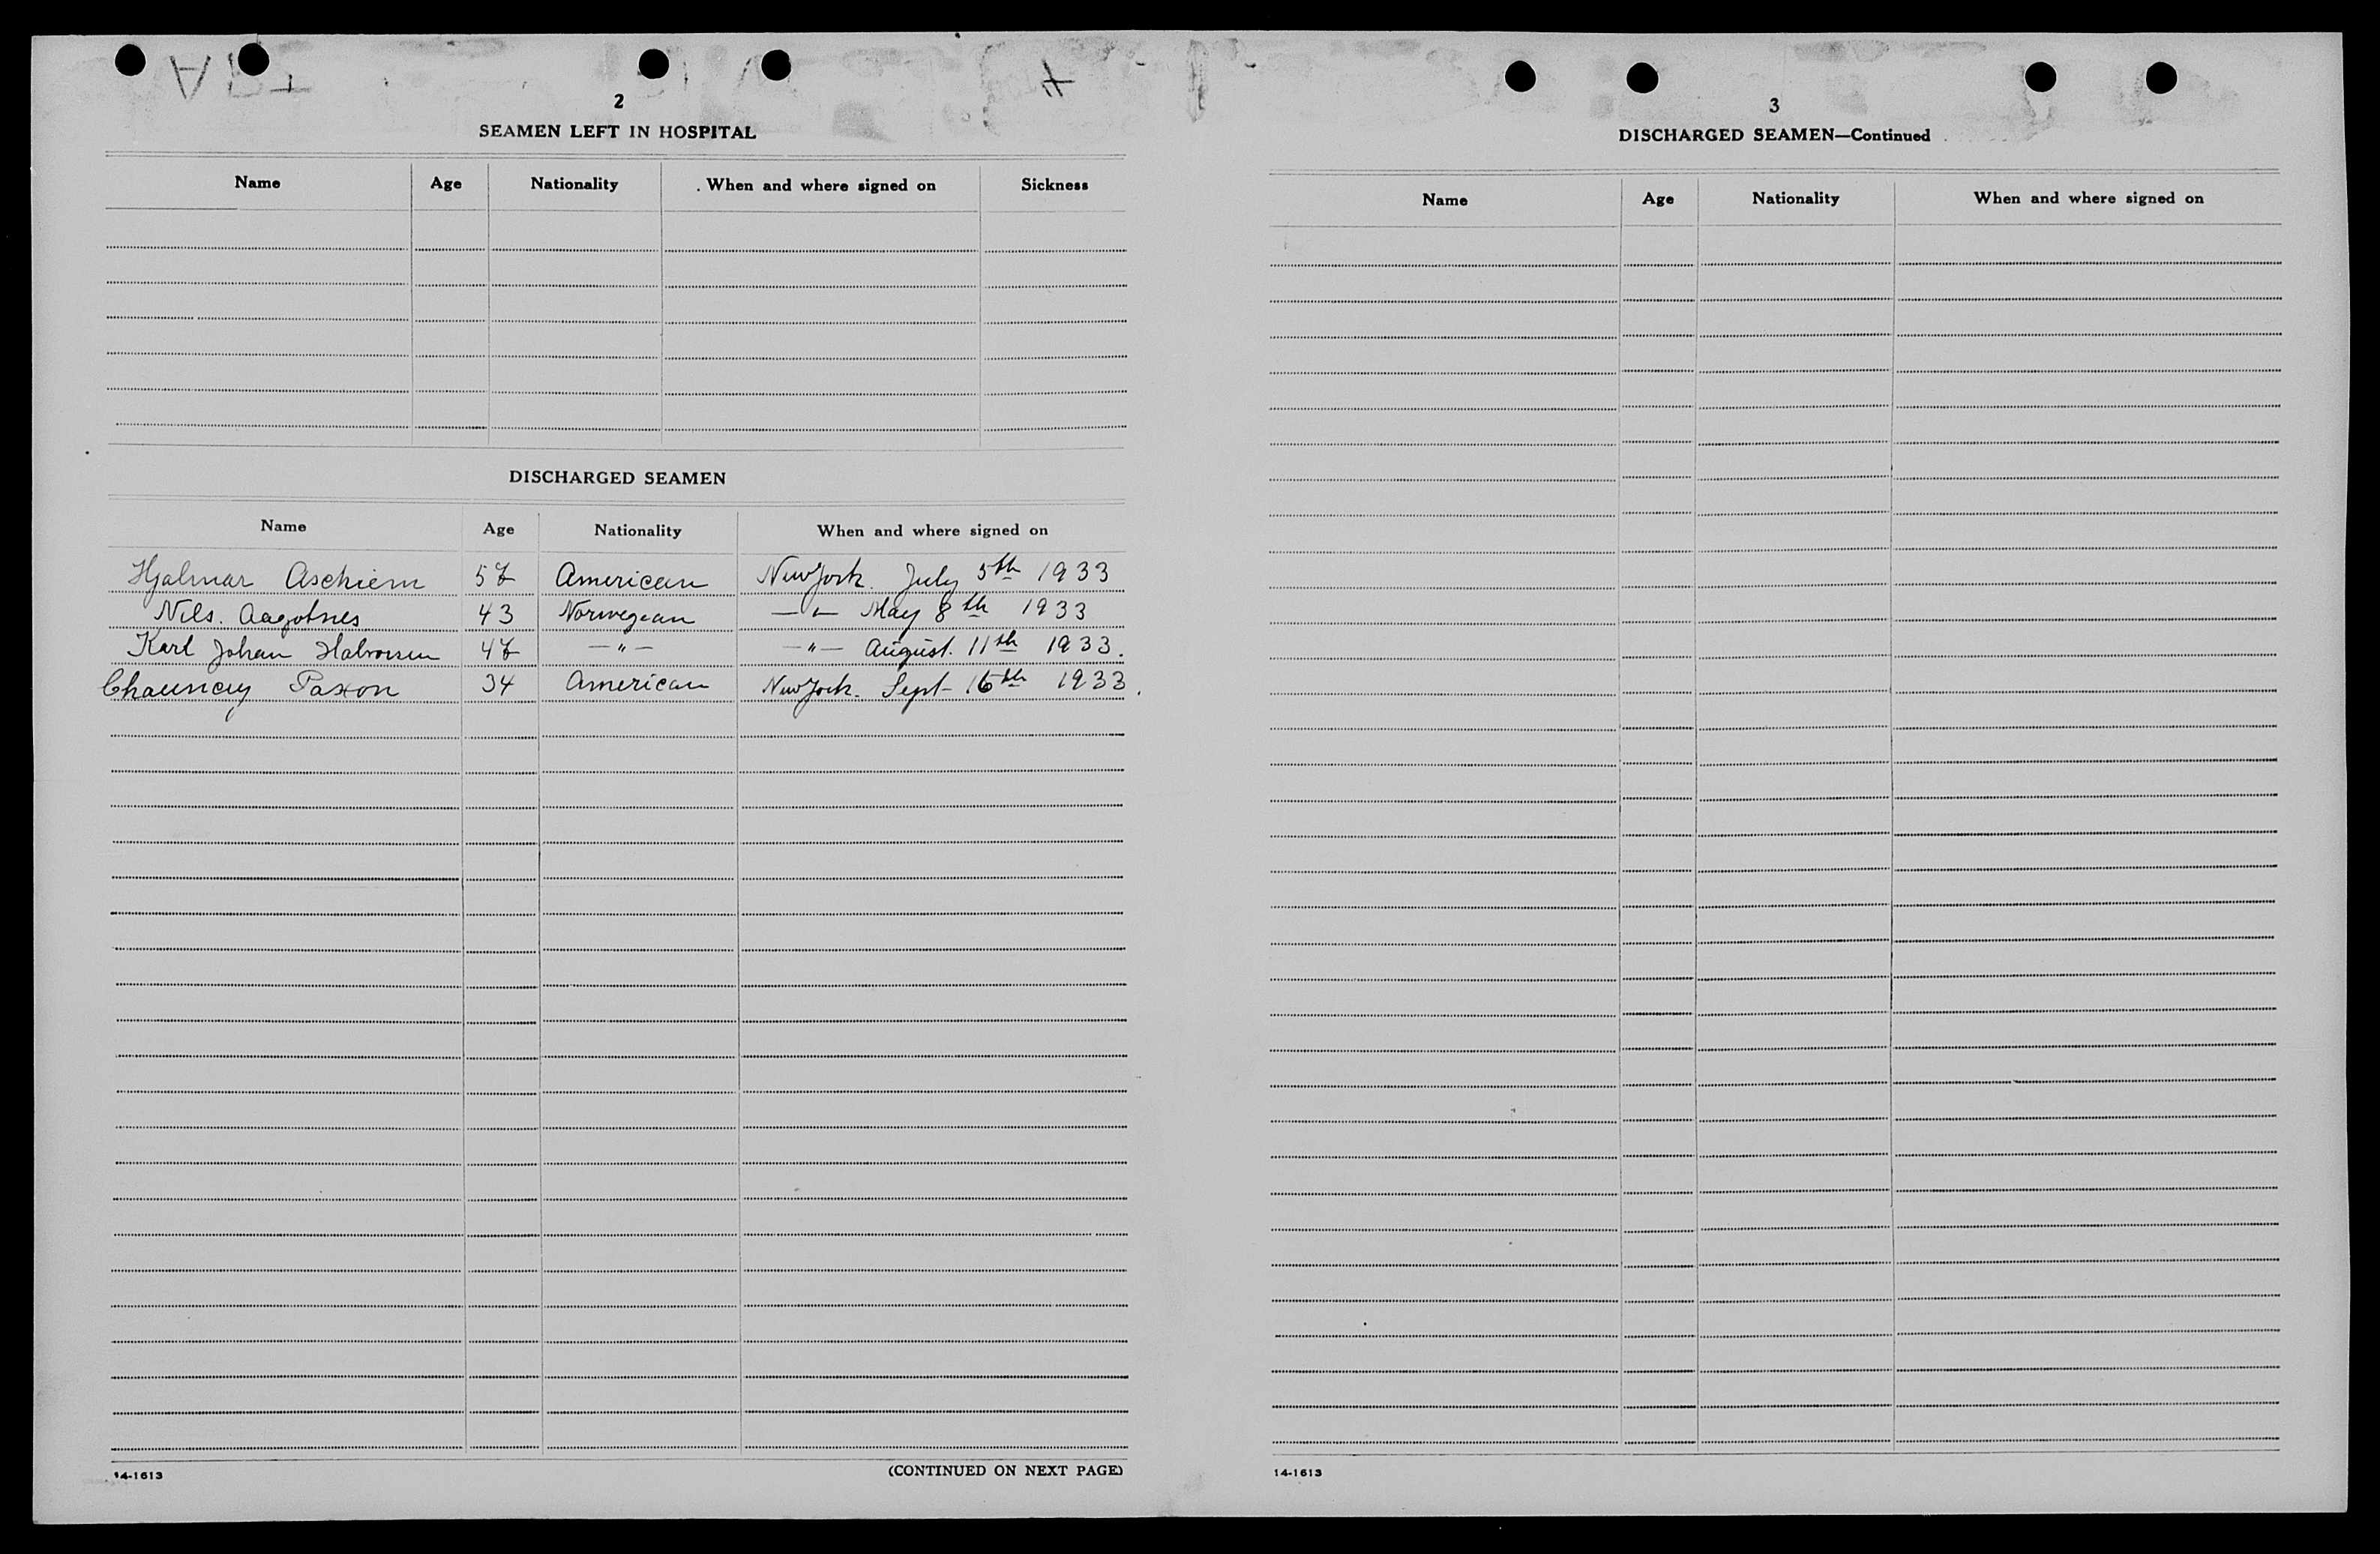 2
SEAMEN LEFT IN HOSPITAL
Name Age Nationality When and where signed on Sickness
DISCHARGED SEAMEN
Name Age Nationality When and where signed on
Hjalmar Aschiem 57 American New York. July 5th 1933
Nils. Aagotnes 43 Norwegian —"— May 8th 1933
Karl Johan Halvorsen 47 —"— —"— August. 11th 1933.
Chauncey Paxon 34 American New York. Sept- 16th 1933.
14-1613 (CONTINUED ON NEXT PAGE)
3
DISCHARGED SEAMEN—Continued
Name Age Nationality When and where signed on
14-1613